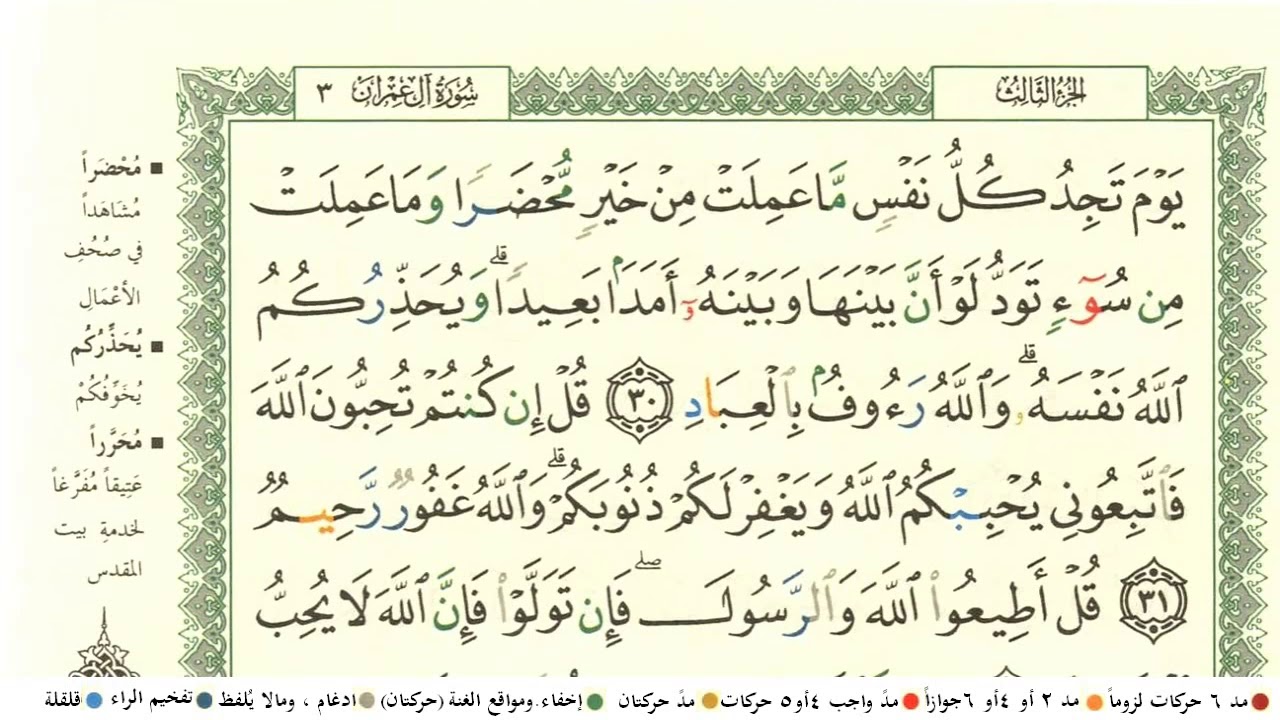 الجزء الثالث
سورة آل عمران ٣
يَوْمَ تَجِدُ كُلُّ نَفْسٍ مَّا عَمِلَتْ مِنْ خَيْرٍ مُّحْضَرًا وَمَا عَمِلَتْ
مِن سُوٓءٍ تَوَدُّ لَوْ أَنَّ بَيْنَهَا وَبَيْنَهُۥٓ أَمَدَۢا بَعِيدًا ۗ وَيُحَذِّرُكُمُ
ٱللَّهُ نَفْسَهُۥ ۗ وَٱللَّهُ رَءُوفُۢ بِٱلْعِبَادِ ﴿٣٠﴾ قُلْ إِن كُنتُمْ تُحِبُّونَ ٱللَّهَ
فَٱتَّبِعُونِي يُحْبِبْكُمُ ٱللَّهُ وَيَغْفِرْ لَكُمْ ذُنُوبَكُمْ ۗ وَٱللَّهُ غَفُورٌ رَّحِيمٌ
﴿٣١﴾ قُلْ أَطِيعُوا۟ ٱللَّهَ وَٱلرَّسُولَ ۖ فَإِن تَوَلَّوْا۟ فَإِنَّ ٱللَّهَ لَا يُحِبُّ
■ مُحْضَراً
مُشَاهَداً
في صُحُفِ
الأَعْمَال
■ يُحَذِّرُكُم
يُخَوِّفُكُمْ
■ مُحَرَّراً
عَتِيقاً مُفَرَّغاً
لخدمةِ بيت
المقدس
مد ٦ حركات لزوماً مد ٢ أو ٤ أو ٦ جوازاً مدّ واجب ٤ أو ٥ حركات مدّ حركتان إخفاء ومواقع الغنة (حركتان) ادغام ، ومالا يُلفظ تفخيم الراء قلقلة